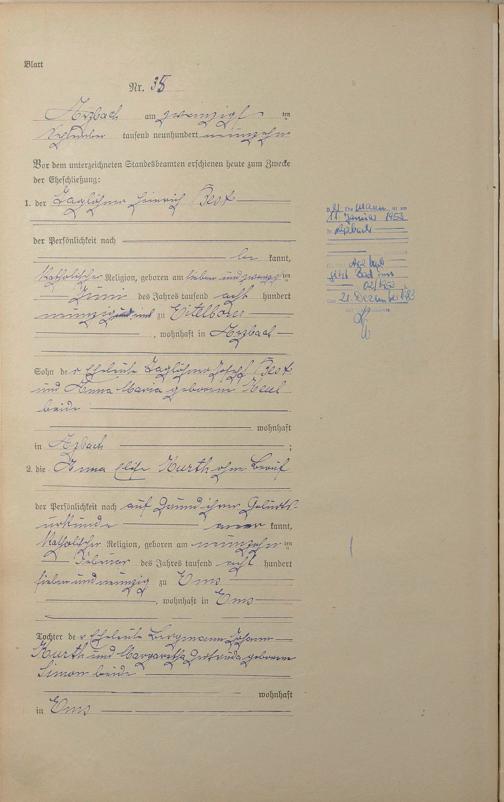 Blatt
Nr. 35
Arzbach am zwanzigsten
September tausend neunhundert neunzehn
Vor dem unterzeichneten Standesbeamten erschienen heute zum Zwecke
der Eheschließung:
1. der Taglöhner Heinrich Best
der Persönlichkeit nach
be kannt,
katholischer Religion, geboren am sieben und zwanzigsten
Juni des Jahres tausend acht hundert
neunzig zu Eitelborn
, wohnhaft in Arzbach
Sohn der Eheleute Taglöhner Josef Best
und Anna Maria geborene Keul
beide
wohnhaft
in Arzbach ;
2. die Anna Elise Kurth ohne Beruf
der Persönlichkeit nach auf Grund ihrer Geburts-
urkunde kannt,
katholischer Religion, geboren am neunzehnten
Februar des Jahres tausend acht hundert
sieben und neunzig zu Ems
, wohnhaft in Ems
Tochter der Eheleute Bergmann Johann
Kurth und Margaretha Gertruda geborene
Simon beide
wohnhaft
in Ems
Mann
11. Januar 1952
Arzbach
Bad Ems
21. Dezember